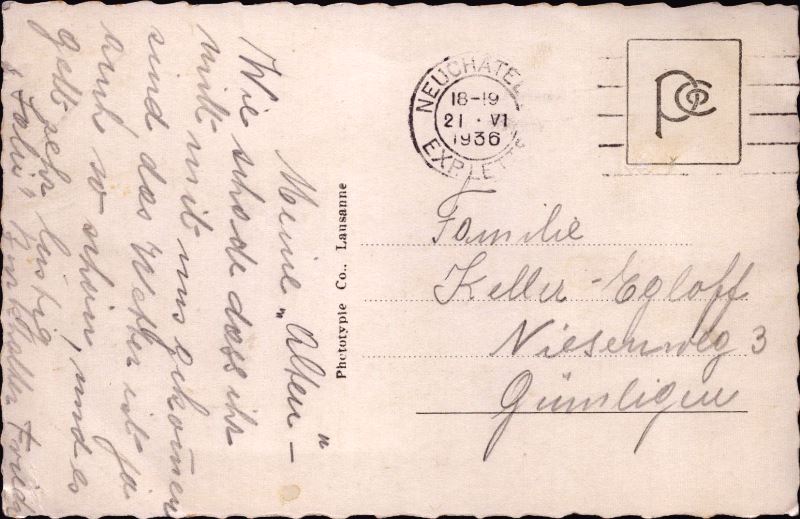 Meine „Alten" –
Wie schade dass ihr
nicht mit uns gekom̅en
sind das Wetter ist ja
auch so schön, und es
geht sehr lustig
NEUCHATEL
18-19
21 · VI
1936
EXP. LETT
PCo
Familie
Keller-Egloff
Niesenweg 3
Gümligen
Phototypie Co., Lausanne